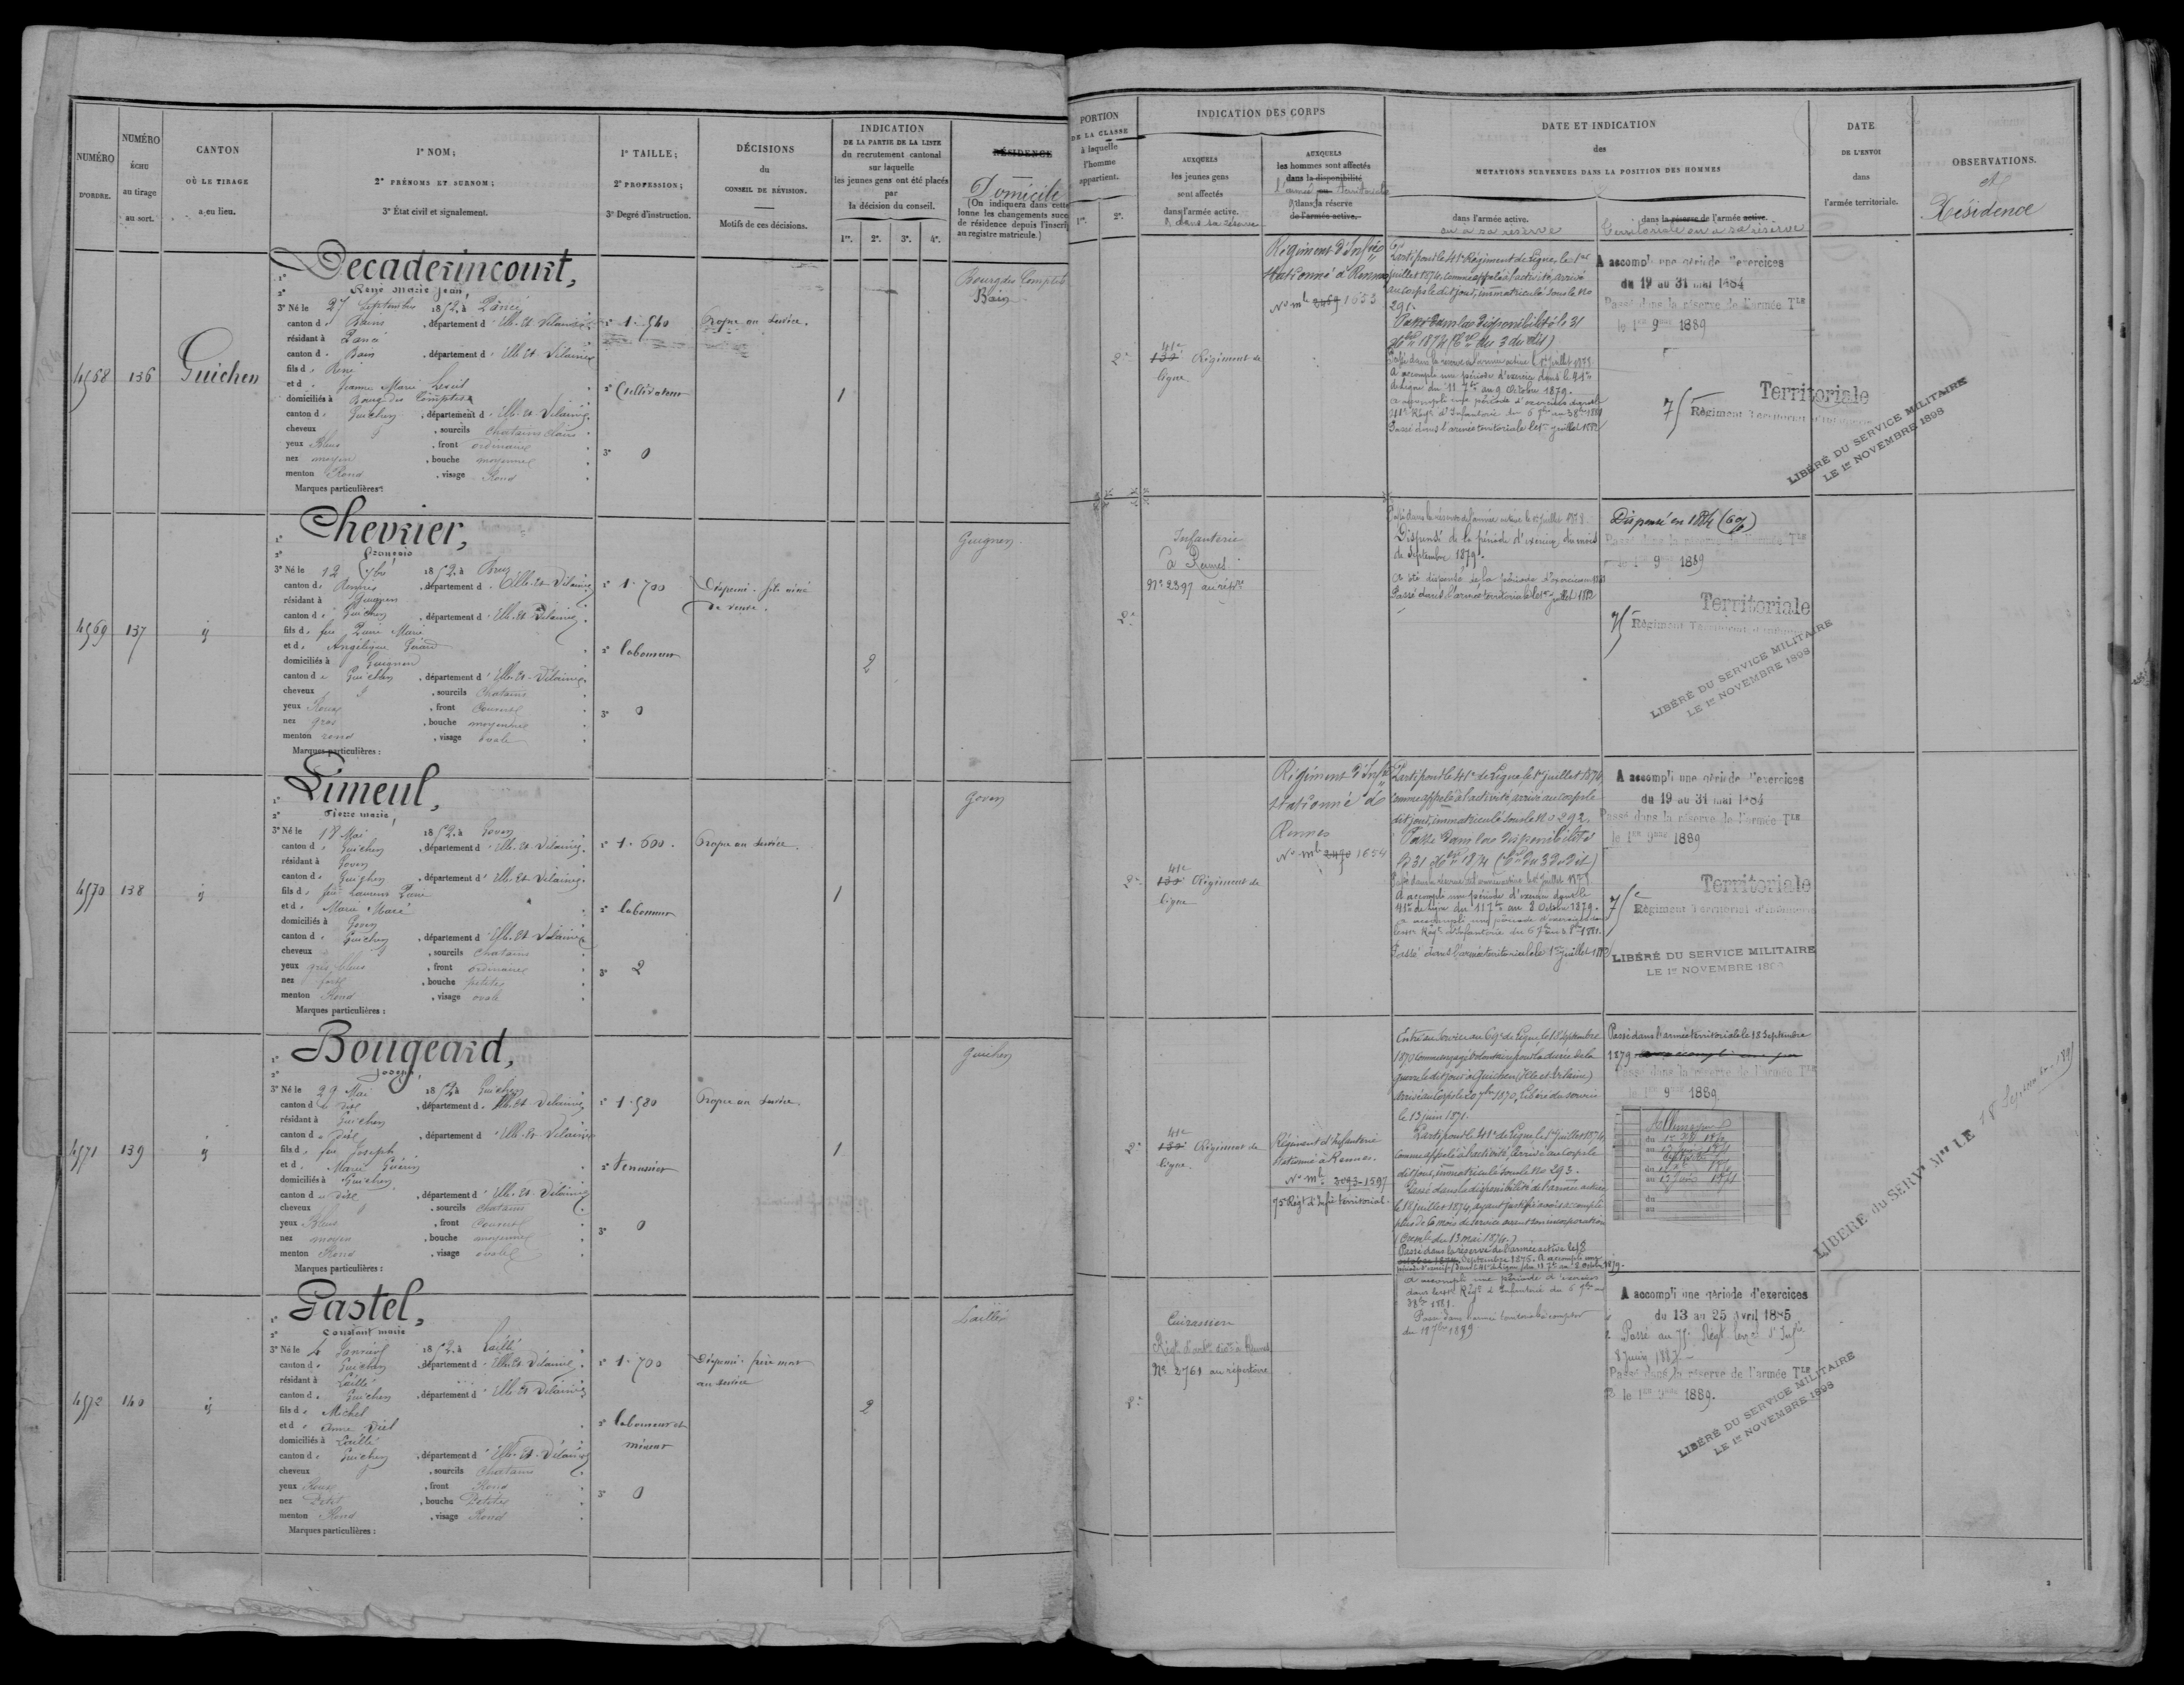 NUMÉRO
D'ORDRE.
NUMÉRO
ÉCHU
au tirage
au sort.
CANTON
OÙ LE TIRAGE
a eu lieu.
1° NOM;
2° PRÉNOMS ET SURNOM;
3° État civil et signalement.
1° TAILLE;
2° PROFESSION;
3° Degré d'instruction.
DÉCISIONS
du
CONSEIL DE RÉVISION.
Motifs de ces décisions.
INDICATION
DE LA PARTIE DE LA LISTE
du recrutement cantonal
sur laquelle
les jeunes gens ont été placés
par
la décision du conseil.
1re. 2e. 3e. 4e.
RÉSIDENCE
Domicile
(On indiquera dans cette
lonne les changements succ
de résidence depuis l'inscrip
au registre matricule.)
4568 136 Guichen
Decaderincourt,
René Marie Jean,
3° Né le 27 Septembre 1852, à Pancé
canton de Bain, département d'Ille-et-Vilaine
résidant à Pancé
canton de Bain, département d'Ille-et-Vilaine
fils de René
et de Jeanne Marie
domiciliés à Bourg des Comptes
canton de Guichen, département d'Ille-et-Vilaine
cheveux, sourcils chatains clairs
yeux Bleus, front ordinaire
nez moyen, bouche moyenne
menton Rond, visage Rond
Marques particulières:
1° 1.540
2° Cultivateur
3° 0
Propre au service.
1
Bourg des Comptes
Bain
4569 137 id
Chevrier,
François
3° Né le 12 7bre 1852, à Bruz
canton de Rennes, département d'Ille-et-Vilaine
résidant à Guignen
canton de Guichen, département d'Ille-et-Vilaine
fils de feu Marie
et de Angélique
domiciliés à Guignen
canton de Guichen, département d'Ille-et-Vilaine
cheveux, sourcils chatains
yeux Roux, front Couvert
nez gros, bouche moyenne
menton rond, visage ovale
Marques particulières:
1° 1.700
2° laboureur
3° 0
Dispensé. fils aîné
de veuve.
2
Guignen
4570 138 id
Limeul,
Pierre marie,
3° Né le 18 Mai 1852, à Goven
canton de Guichen, département d'Ille-et-Vilaine
résidant à Goven
canton de Guichen, département d'Ille-et-Vilaine
fils de feu
et de Marie
domiciliés à Goven
canton de Guichen, département d'Ille-et-Vilaine
cheveux, sourcils chatains
yeux gris bleus, front ordinaire
nez fort, bouche petite
menton Rond, visage ovale
Marques particulières:
1° 1.600.
2° laboureur
3° 2
Propre au service.
1
Goven
4571 139 id
Bougeard,
Joseph,
3° Né le 29 Mai 1852, à Guichen
canton du dit, département d'Ille-et-Vilaine
résidant à Guichen
canton du dit, département d'Ille-et-Vilaine
fils de feu Joseph
et de Marie Guérin
domiciliés à Guichen
canton du dit, département d'Ille-et-Vilaine
cheveux, sourcils chatains
yeux Bleus, front Couvert
nez moyen, bouche moyenne
menton Rond, visage ovale
Marques particulières:
1° 1.580
3° 0
Propre au service.
1
Guichen
4572 140 id
Gastel,
Constant marie
3° Né le 4 Janvier 1852, à Laillé
canton de Guichen, département d'Ille-et-Vilaine
résidant à Laillé
canton de Guichen, département d'Ille-et-Vilaine
fils de Michel
et de Anne
domiciliés à Laillé
canton de Guichen, département d'Ille-et-Vilaine
cheveux, sourcils chatains
yeux Roux, front Rond
nez Petit, bouche Petite
menton Rond, visage Rond
Marques particulières:
1° 1.700
2° laboureur et
mineur
3° 0
Dispensé. frère mort
au service
2
Laillé
PORTION
DE LA CLASSE
à laquelle
l'homme
appartient.
1re. 2e.
INDICATION DES CORPS
AUXQUELS
les jeunes gens
sont affectés
dans l'armée active.
& dans sa réserve
AUXQUELS
les hommes sont affectés
dans la disponibilité
l'armée ou Territoriale
dans la réserve
de l'armée active.
DATE ET INDICATION
des
MUTATIONS SURVENUES DANS LA POSITION DES HOMMES
dans l'armée active.
ou à sa réserve
dans la réserve de l'armée active.
Territoriale ou à sa réserve
DATE
DE L'ENVOI
dans
l'armée territoriale.
OBSERVATIONS.
et
Résidence
2e
41e
Régiment de
ligne
Régiment d'Infrie
stationné à Rennes
No mle 2469 1653
Parti pour le 41e Régiment de Ligne, le 1er
juillet 1874, comme appelé à l'activité, arrivé
au corps le dit jour, immatriculé sous le No
291.
Passé dans la disponibilité le 31
Passé dans la réserve de l'armée active le 1er juillet
A accompli une période d'exercices dans le 41e
de Ligne du 11 7bre au 9 Octobre 1879.
Passé dans l'armée territoriale le 1er juillet 1882
A accompli une période d'exercices
du 19 au 31 mai 1884
Passé dans la réserve de l'armée Tle
le 1er 9bre 1889
Territoriale
75e Régiment Territorial d'Infanterie
LIBÉRÉ DU SERVICE MILITAIRE
LE 1er NOVEMBRE 1898
2e
Infanterie
à Rennes
No 2397 au répre
Passé dans la réserve de l'armée active le 1er juillet 1878
Dispensé de la période d'exercices du mois
de Septembre 1879.
A été dispensé de la période d'exercices en 1881
Passé dans l'armée territoriale le 1er juillet 1882
Dispensé en 1884 (6%)
Passé dans la réserve de l'armée Tle
le 1er 9bre 1889
Territoriale
75 Régiment Territorial d'Infanterie
LIBÉRÉ DU SERVICE MILITAIRE
LE 1er NOVEMBRE 1898
2e
41e
Régiment de
ligne
Régiment d'Infie
stationné à
Rennes
No mle 2470 1654
Parti pour le 41e de Ligne, le 1er juillet 1874
comme appelé à l'activité, arrivé au corps le
dit jour, immatriculé sous le No 292.
Passé dans la disponibilité
A accompli une période d'exercices dans le
41e de ligne du 11 7bre au 8 Octobre 1879.
Passé dans l'armée territoriale le 1er juillet 1882
A accompli une période d'exercices
du 19 au 31 mai 1884
Passé dans la réserve de l'armée Tle
le 1er 9bre 1889
Territoriale
75e Régiment Territorial d'Infanterie
LIBÉRÉ DU SERVICE MILITAIRE
LE 1er NOVEMBRE 189
2e
41e
Régiment de
ligne.
Régiment d'Infanterie
stationné à Rennes.
No mle 2093-1597
75e Régt d'Infie territorial.
Entré au service au 69e de Ligne, le 18 Septembre
1870 comme engagé volontaire pour la durée de la
guerre le dit jour à Guichen (Ille et Vilaine)
arrivé au Corps le 20 7bre 1870, Libéré du service
le 13 juin 1871.
Parti pour le 41e de Ligne, le 1er juillet 1874,
comme appelé à l'activité, arrivé au corps le
dit jour, immatriculé sous le No 293.
Passé dans la disponibilité de l'armée active
le 18 juillet 1874, ayant justifié avoir accompli
plus de 6 mois de service avant son incorporation
(Circre du 13 mai 1874.)
Passé dans la réserve de l'armée active le 18
octobre 1874. Septembre 1875. A accompli une
A accompli une période d'exercices
Passé dans l'armée territoriale le 18 Septembre
1879
Passé dans la réserve de l'armée Tle
le 1er 9bre 1889
Allemagne
du
au
du
au
du
au
LIBÉRÉ du SERVe Mre LE 18 Septembre 1891
2e
Cuirassier
No 2761 au répertoire
A accompli une période d'exercices
du 13 au 25 avril 1885
Passé au 75e Régt terral d'Infie
8 juin 1887
Passé dans la réserve de l'armée Tle
le 1er 9bre 1889.
LIBÉRÉ DU SERVICE MILITAIRE
LE 1er NOVEMBRE 1898